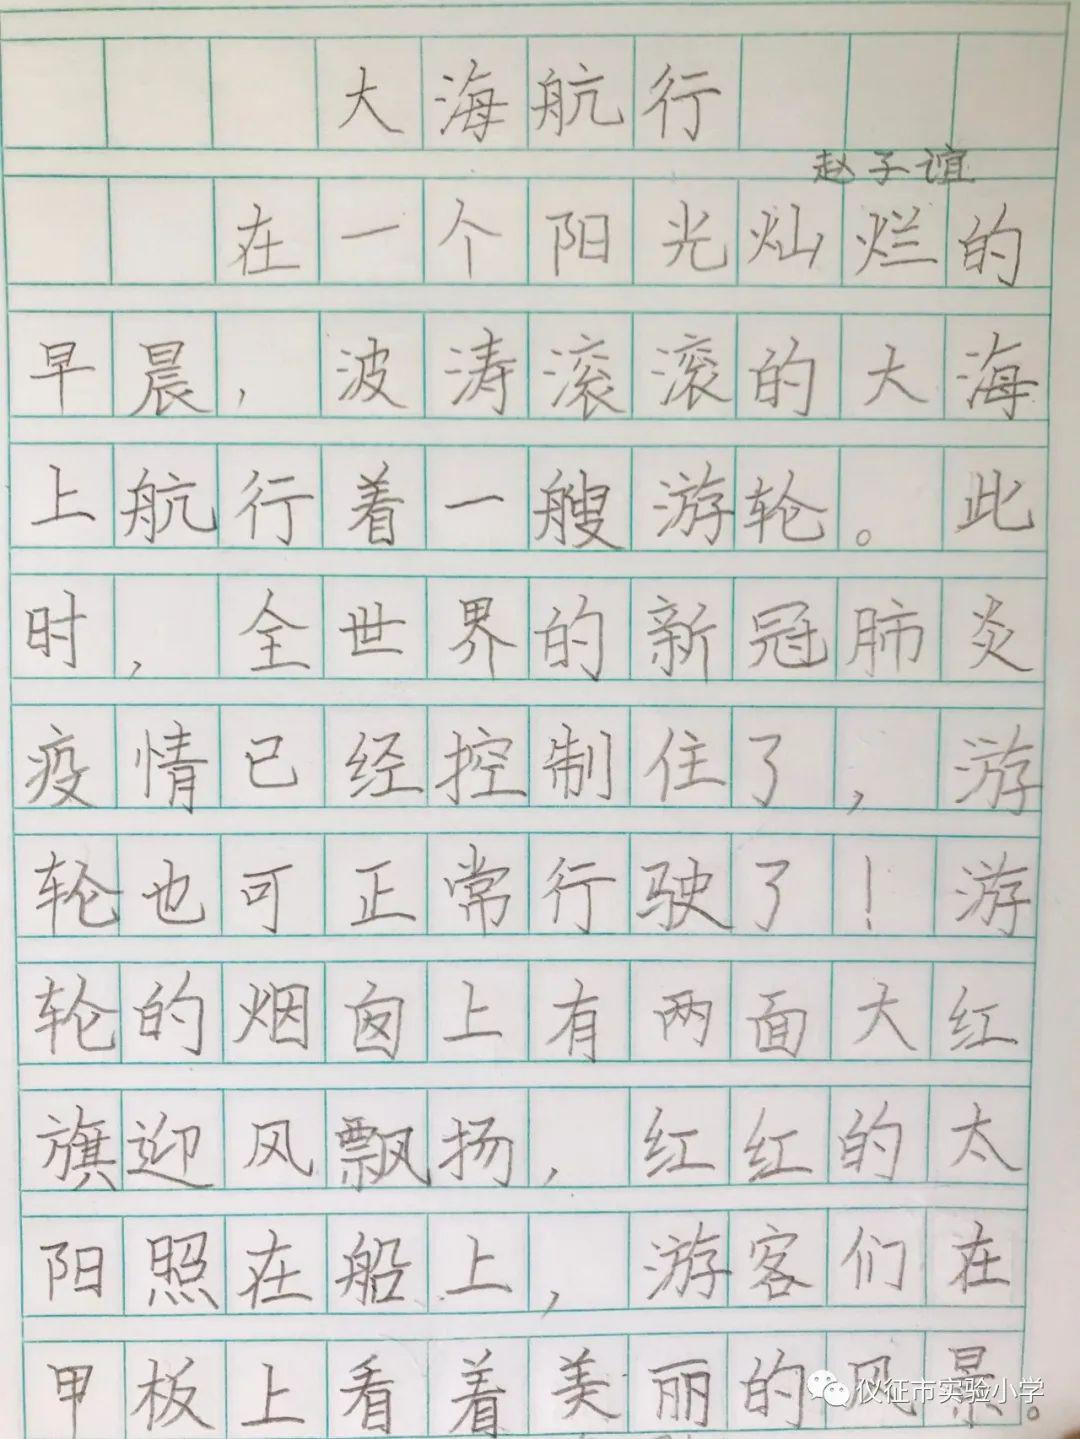 大海航行
赵子谊
在一个阳光灿烂的
早晨，波涛滚滚的大海
上航行着一艘游轮。此
时，全世界的新冠肺炎
疫情已经控制住了，游
轮也可正常行驶了！游
轮的烟囱上有两面大红
旗迎风飘扬，红红的太
阳照在船上，游客们在
甲板上看着美丽的风景。
仪征市实验小学